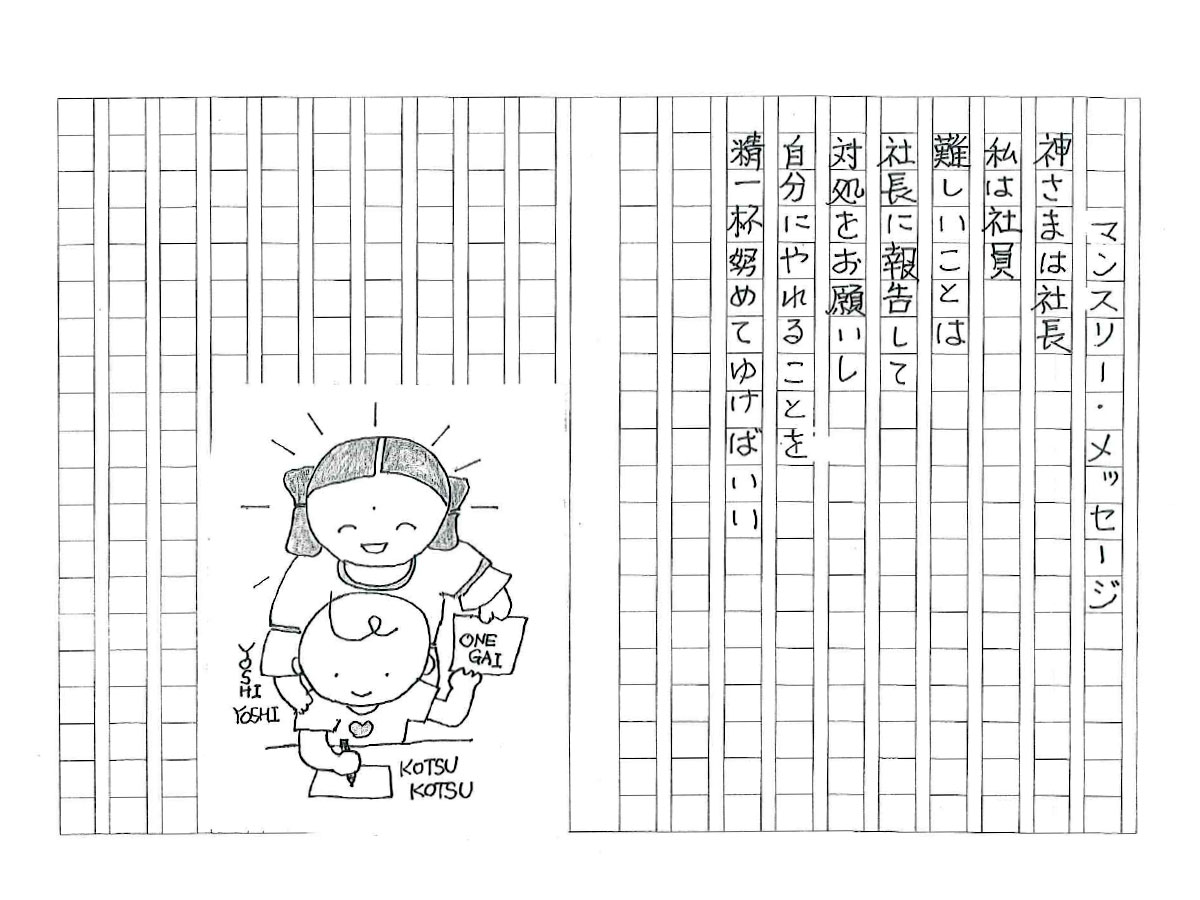 マンスリー・メッセージ
神さまは社長
私は社員
難しいことは
社長に報告して
対処をお願いし
自分にやれることを
精一杯努めてゆけばいい
ONE
GAI
YOSHI
YOSHI
KOTSU
KOTSU